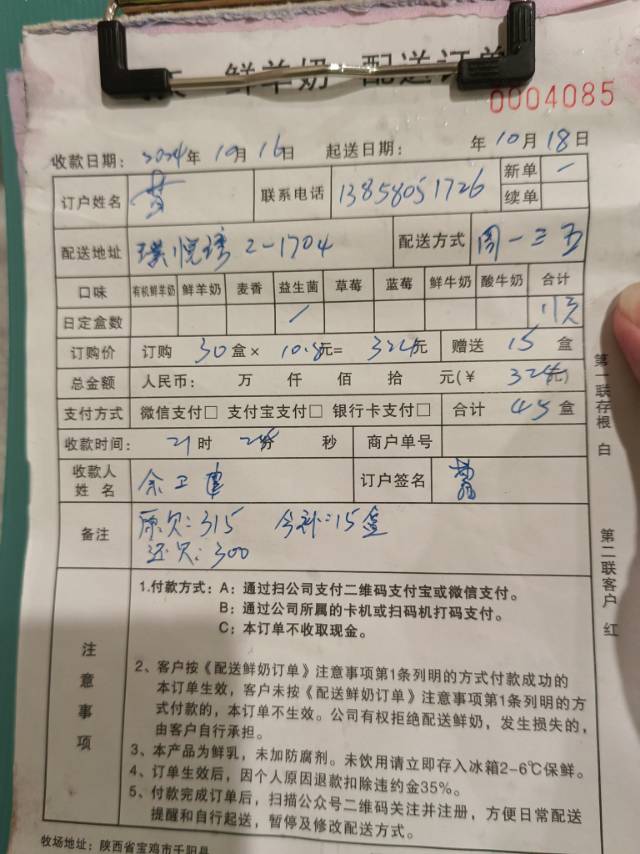 鲜羊奶 配送订单
0004085
收款日期: 2024年 10月 16日 起送日期: 年 10月 18日
订户姓名 联系电话 13858051726 新单 /
续单
配送地址 璞悦 2-1704 配送方式 周一三五
口味 有机鲜羊奶 鲜羊奶 麦香 益生菌 草莓 蓝莓 鲜牛奶 酸牛奶 合计
日定盒数 /
订购价 订购 30 盒× 10.8元= 324元 赠送 15 盒
总金额 人民币: 万 仟 佰 拾 元(¥ 324元)
支付方式 微信支付□ 支付宝支付□ 银行卡支付□ 合计 45 盒
收款时间: 21时 分 秒 商户单号
收款人姓名 余卫建 订户签名
备注 原欠:315 今补:15盒
还欠:300
注意事项
1.付款方式: A: 通过扫公司支付二维码支付宝或微信支付。
B: 通过公司所属的卡机或扫码机打码支付。
C: 本订单不收取现金。
2、客户按《配送鲜奶订单》注意事项第1条列明的方式付款成功的
本订单生效，客户未按《配送鲜奶订单》注意事项第1条列明的方
式付款的，本订单不生效。公司有权拒绝配送鲜奶，发生损失的，
由客户自行承担。
3、本产品为鲜乳，未加防腐剂。未饮用请立即存入冰箱2-6℃保鲜。
4、订单生效后，因个人原因退款扣除违约金35%。
5、付款完成订单后，扫描公众号二维码关注并注册，方便日常配送
提醒和自行起送，暂停及修改配送方式。
牧场地址: 陕西省宝鸡市千阳县
第一联存根 白
第二联客户 红